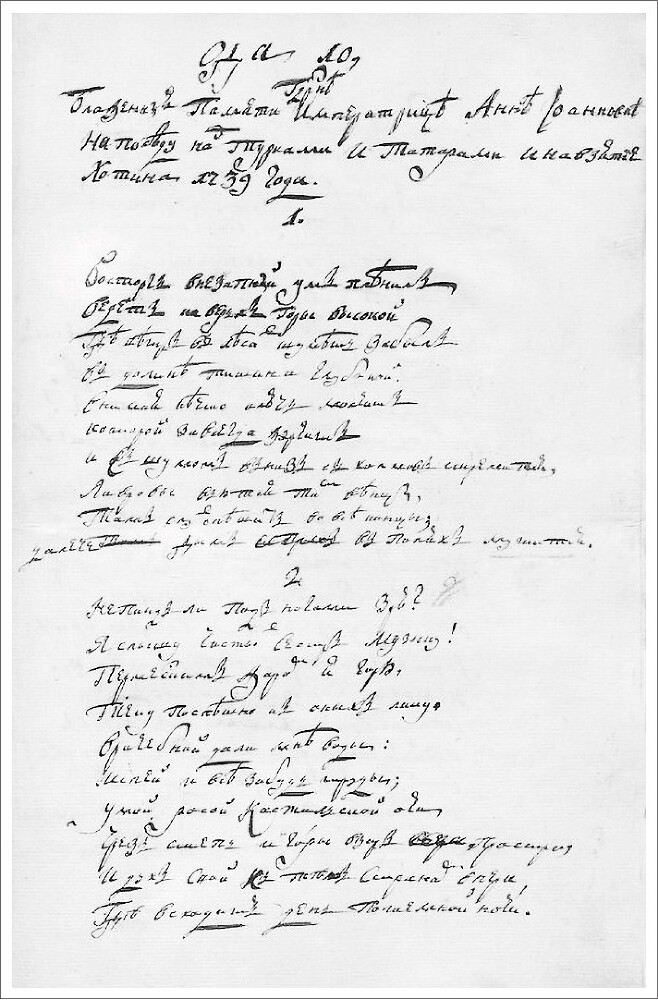 Ода 10,
Гдрнѣ
Блаженныя Памяти Императрицѣ Аннѣ Іоанновнѣ
На побѣду надъ Турками и Татарами и на взятие
Хотина 1739 года.
1.
Восторгъ внезапный умъ плѣнилъ
Ведетъ на верьхъ горы высокой
Гдѣ вѣтръ въ лѣсахъ шумѣть забылъ
Въ долинѣ тишина глубокой.
Внимая нѣчто ключь молчитъ
которой завсегда журчитъ
и съ шумомъ внизъ съ холмовъ стремится,
Лавровы вьются тамъ вѣнцы,
Тамъ слухъ спѣшитъ во всѣ концы;
далече дымъ въ поляхъ курится.
2.
Не Пиндъ ли подъ ногами зрю?
Я слышу чистыхъ сестръ музыку!
Пермесскимъ жаромъ я горю,
Теку поспѣшно къ оныхъ лику.
Врачебной дали мнѣ воды:
Испей и всѣ забудь труды;
умой росой Кастальской очи,
Чрезъ степь и горы взоръ простри,
И духъ свой къ тѣмъ странамъ впери,
Гдѣ всходитъ день по темной ночи.